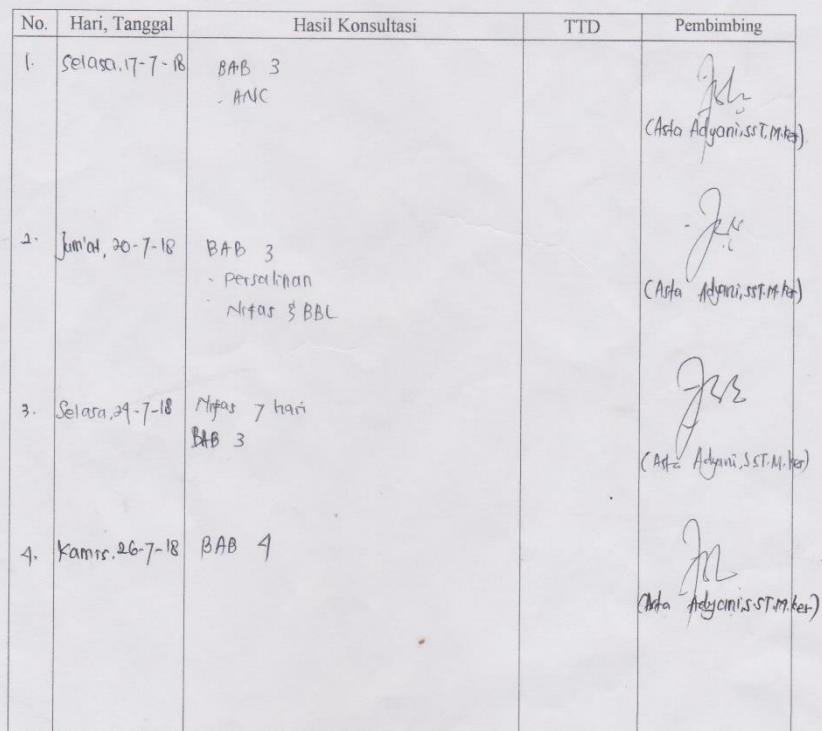 No. Hari, Tanggal Hasil Konsultasi TTD Pembimbing
1. Selasa, 17-7-18 BAB 3
- ANC
(Asta Adyani, SST, M.Kes)
2. Jum'at, 20-7-18 BAB 3
- Persalinan
Nifas & BBL
(Asta Adyani, SST.M.Kes)
3. Selasa, 24-7-18 Nifas 7 hari
BAB 3
(Asta Adyani, SST.M.Kes)
4. Kamis, 26-7-18 BAB 4
(Asta Adyani, S.ST.M.Kes)